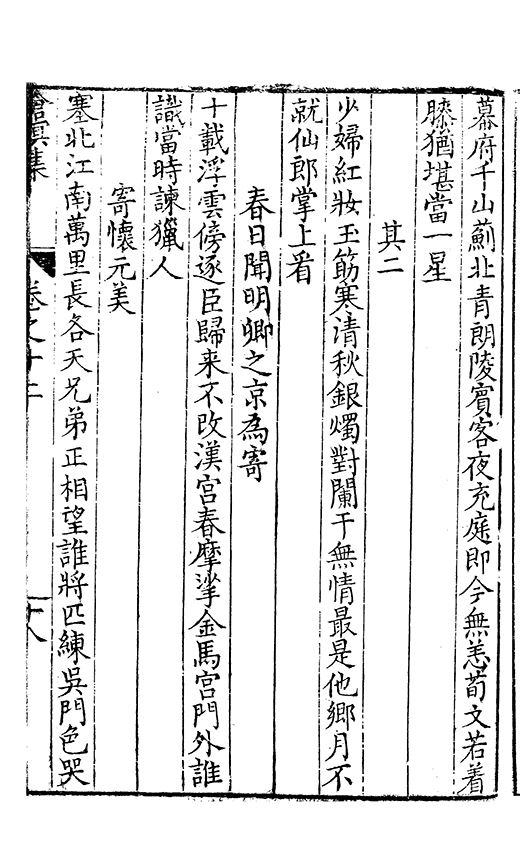 幕府千山薊北青朗陵賓客夜充庭即今無恙荀文若着
膝猶堪當一星
其二
少婦紅妝玉筯寒清秋銀燭對闌干無情最是他鄉月不
就仙郎掌上看
春日聞明卿之京為寄
十載浮雲傍逐臣歸来不改漢宮春摩挲金馬宮門外誰
識當時諫獵人
寄懷元美
塞北江南萬里長各天兄弟正相望誰將匹練吳門色哭
滄溟集
卷之十二
十八